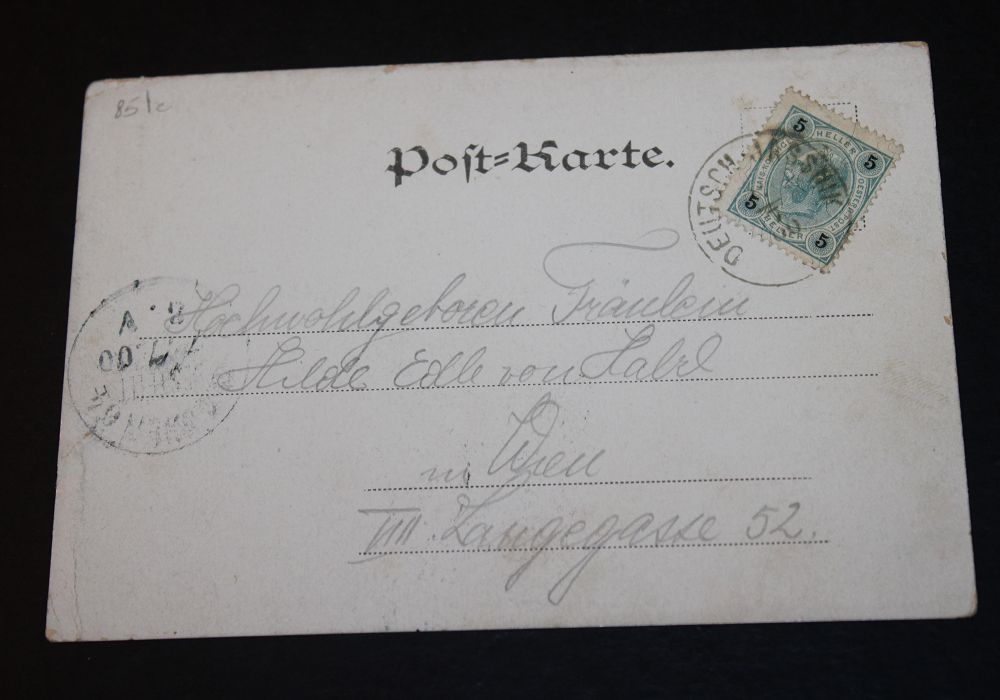 85/c
Post=Karte.
5 HELLER 5
5 HELLER 5
OESTERR.POST
DEUTSCH
Hochwohlgeboren Fräulein
Hilde Edle von
in Wien
VIII. Langegasse 52.
8. A
00
WIEN